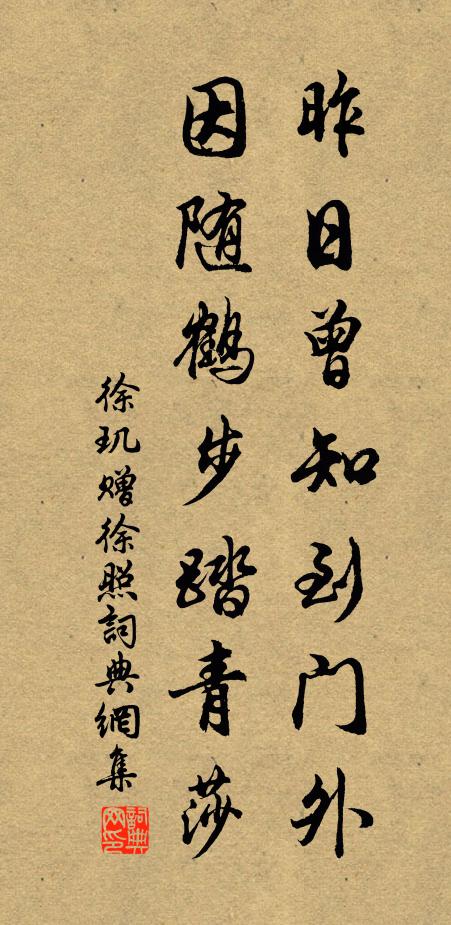 昨日曾知到门外
因随鹤步踏青莎
徐玑赠徐照詞典網集
詞典网印